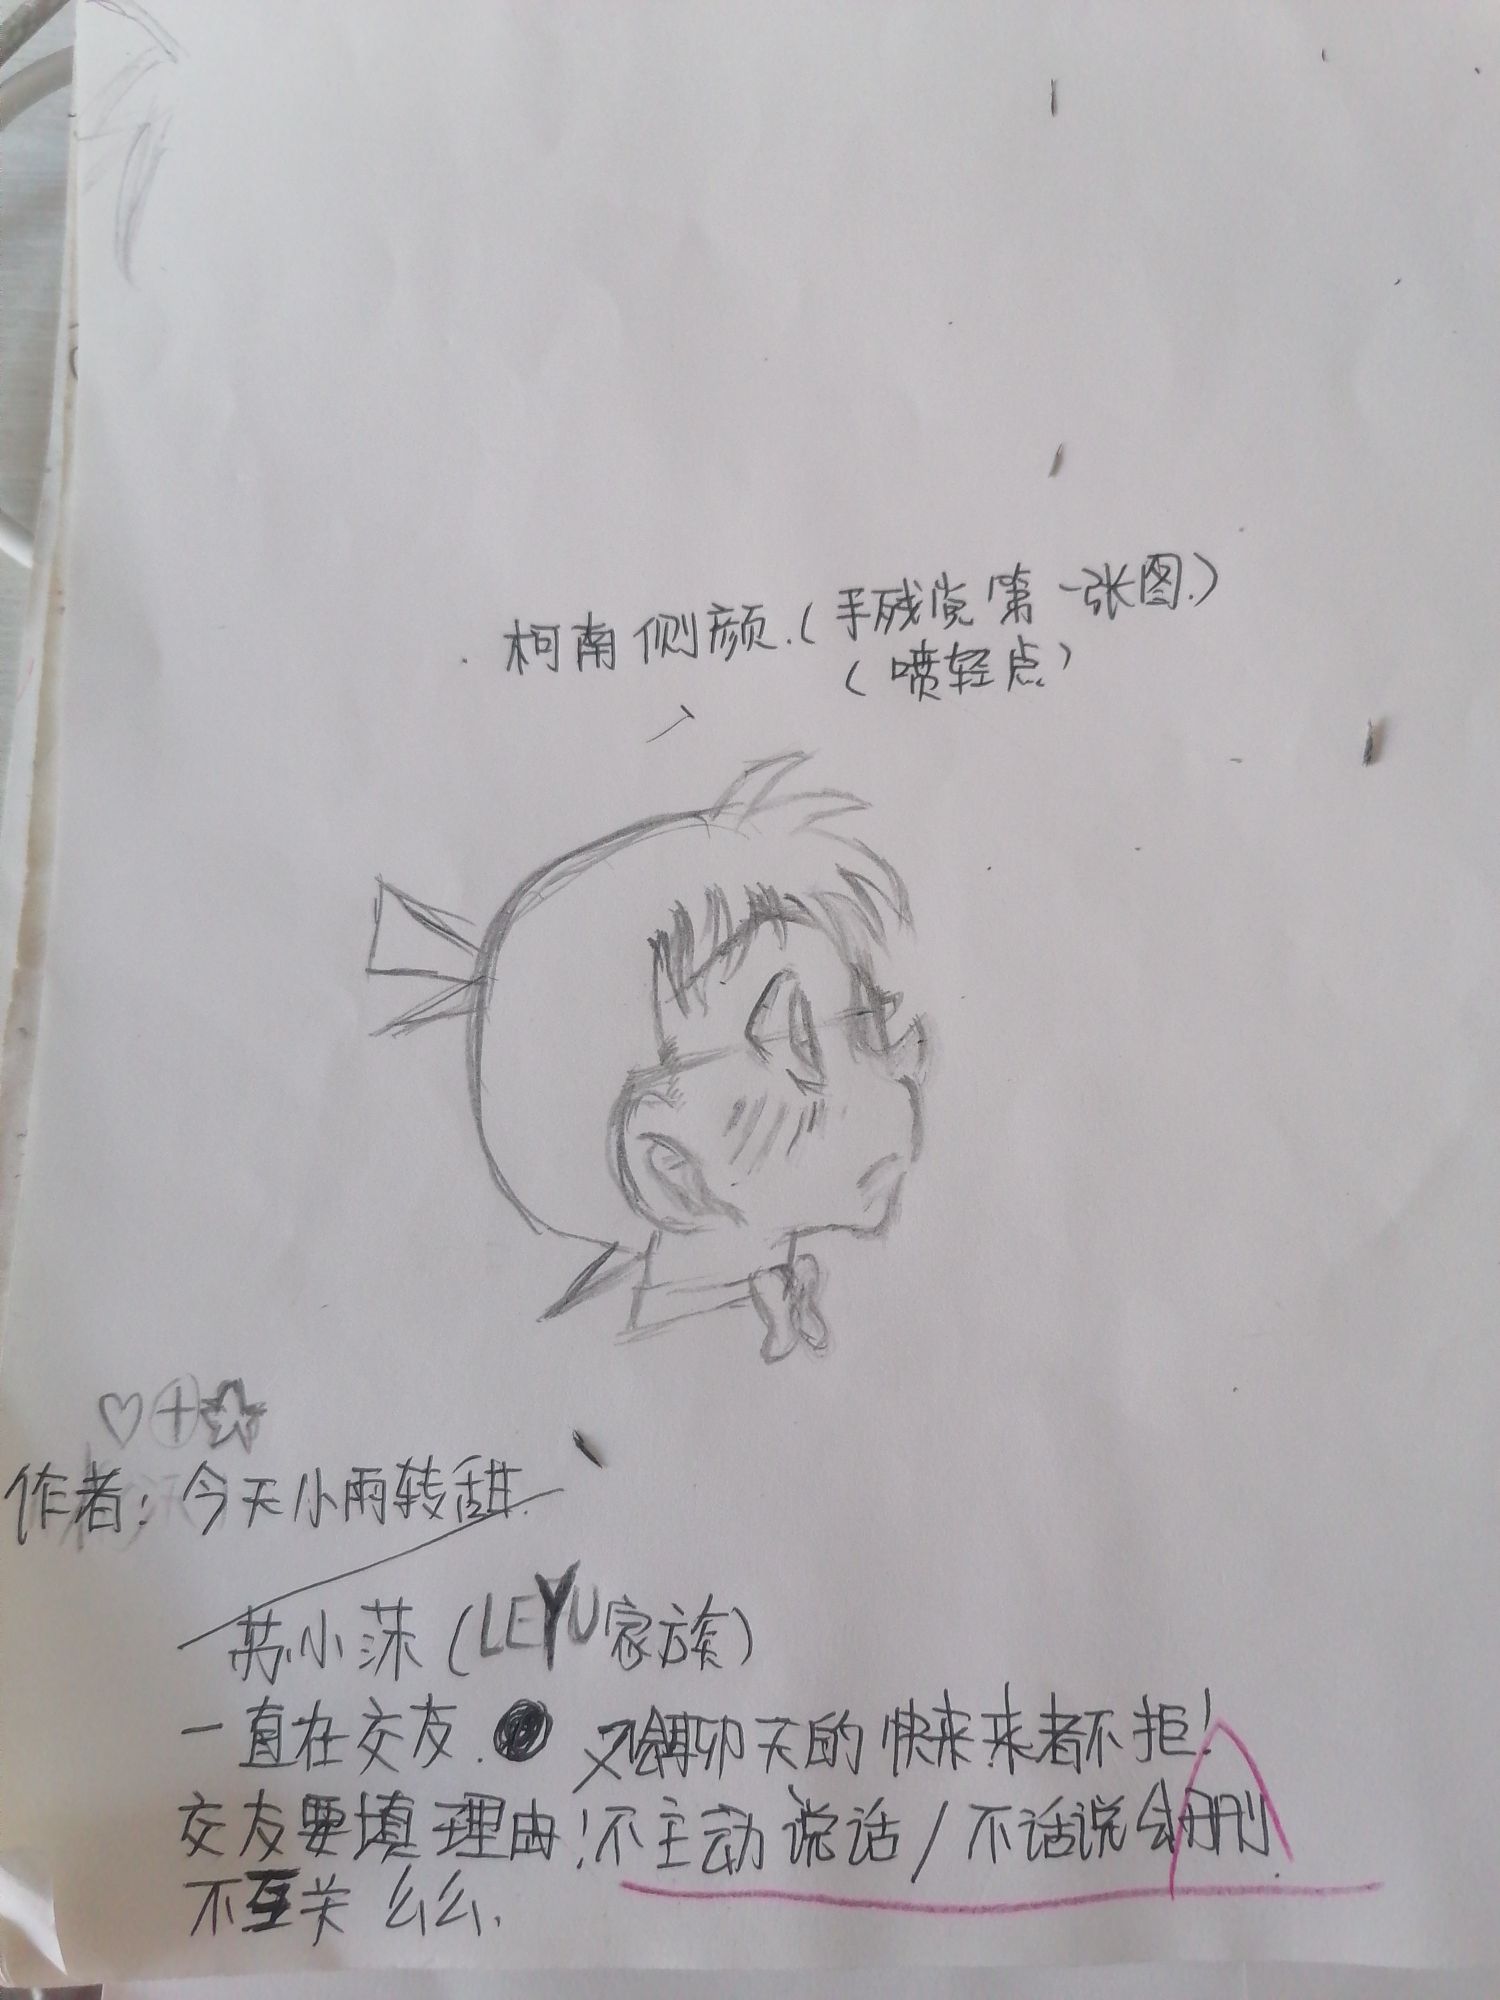 柯南侧颜.(手残党第一张图.)
(喷轻点)
作者:今天小雨转甜.
苏小莯(LEYU家族)
一直在交友. 聊天的快来.来者不拒!
交友要填理由!不主动说话/不话说会删.
不互关么么.